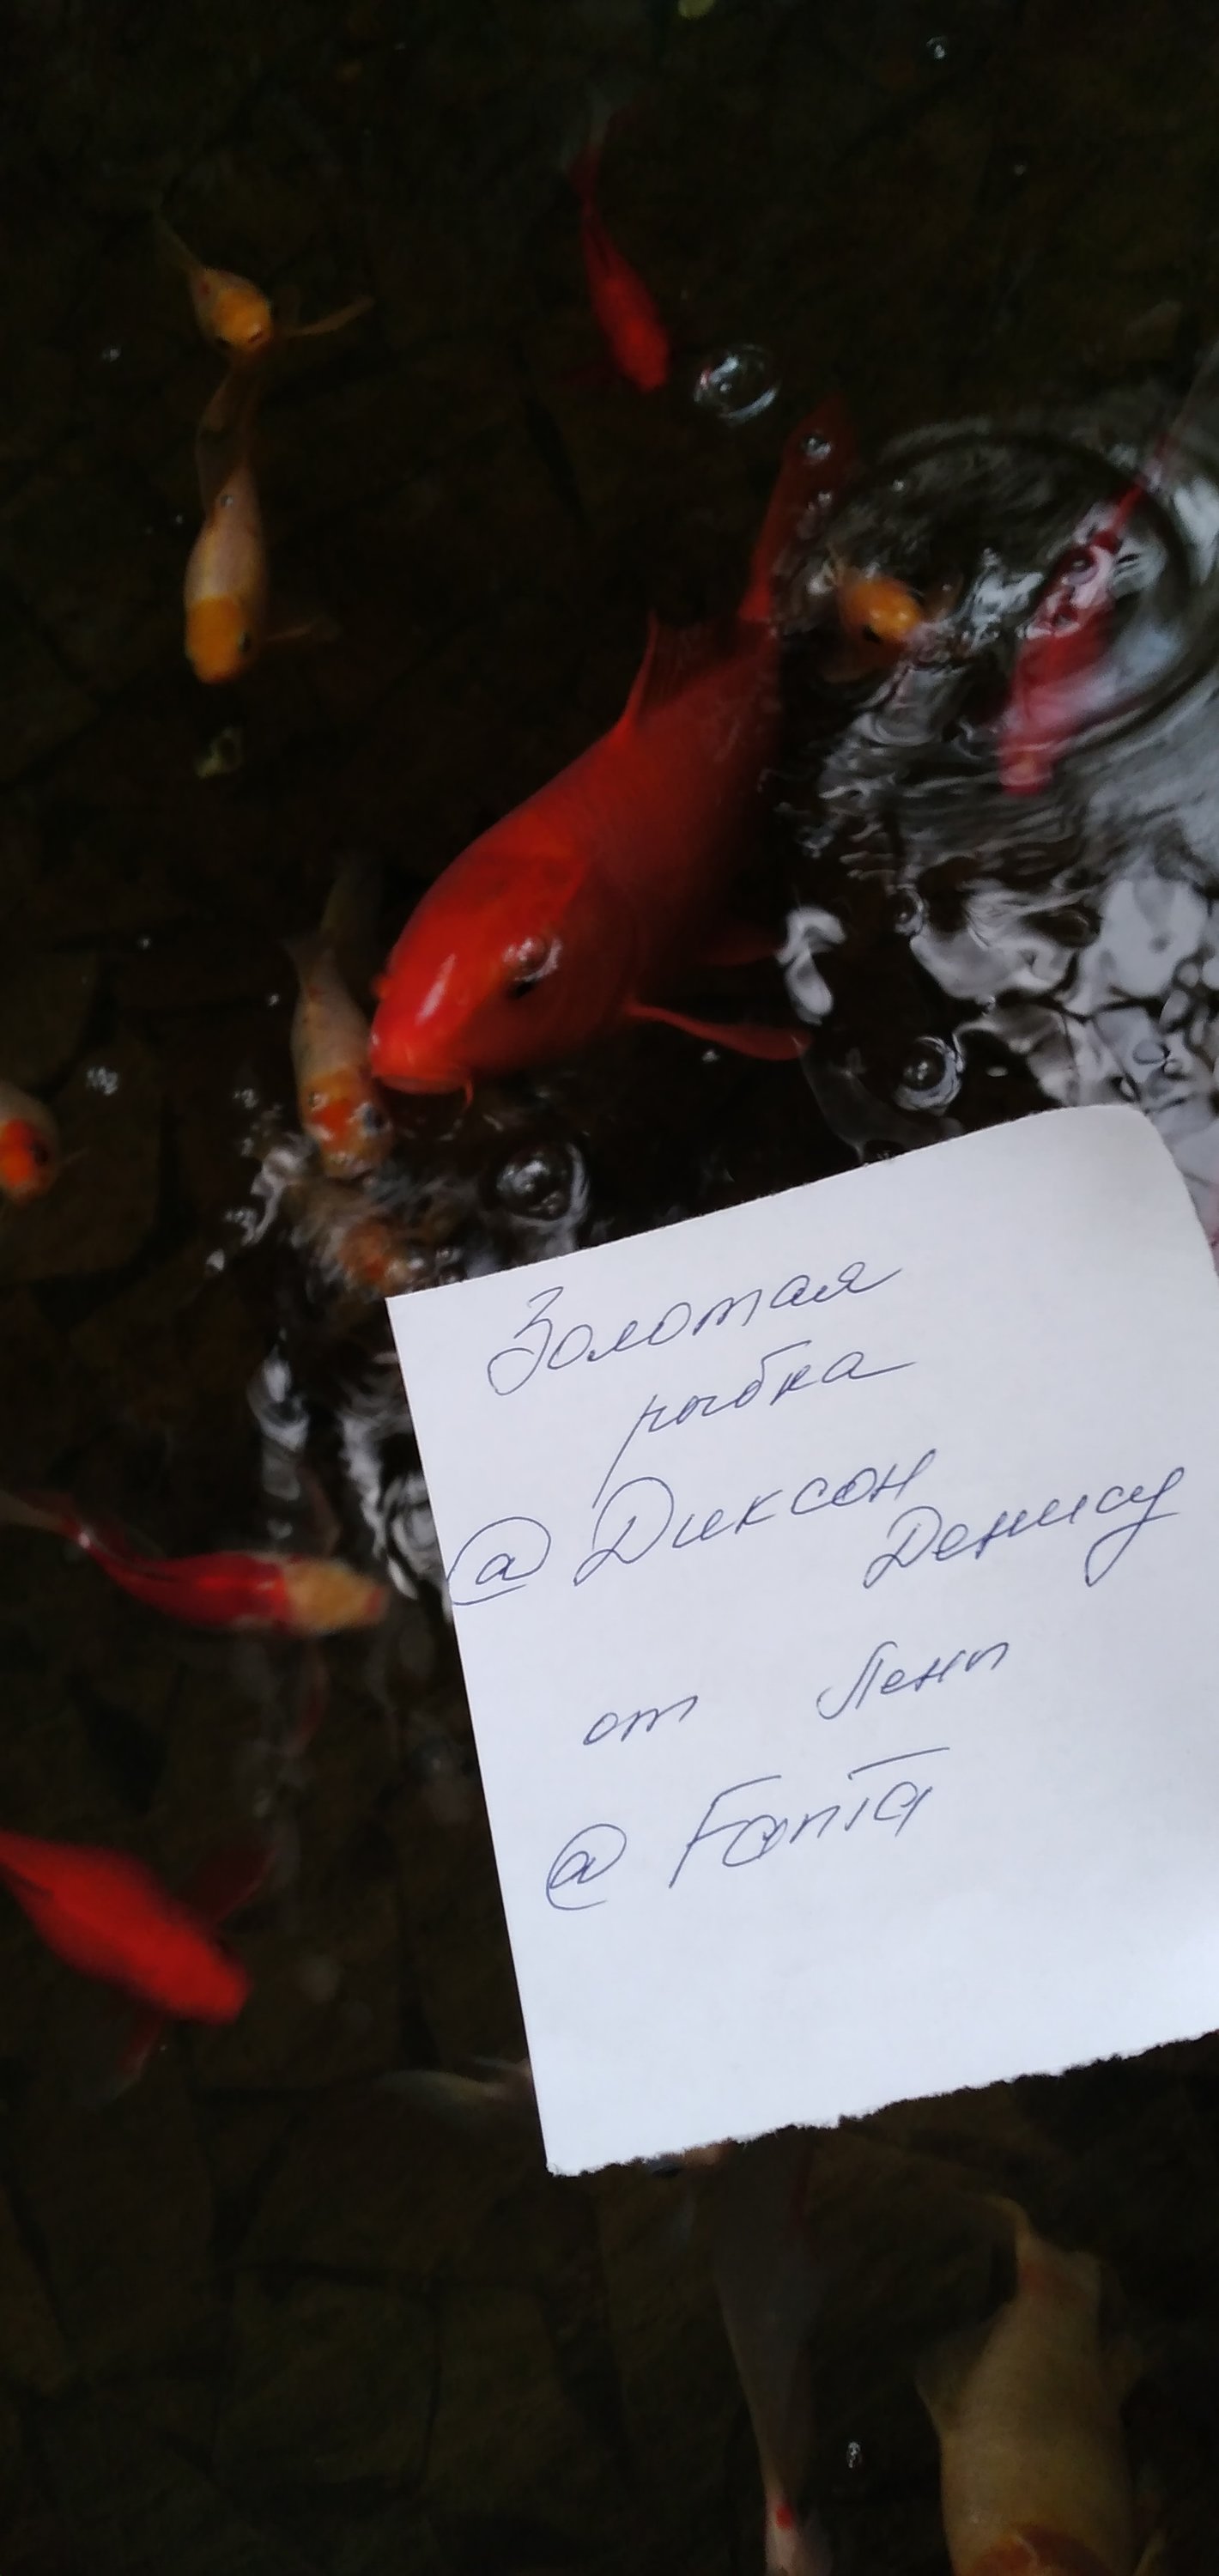 Золотая
рыбка
@ Диксон
Денису
от Лены
@ Fanta